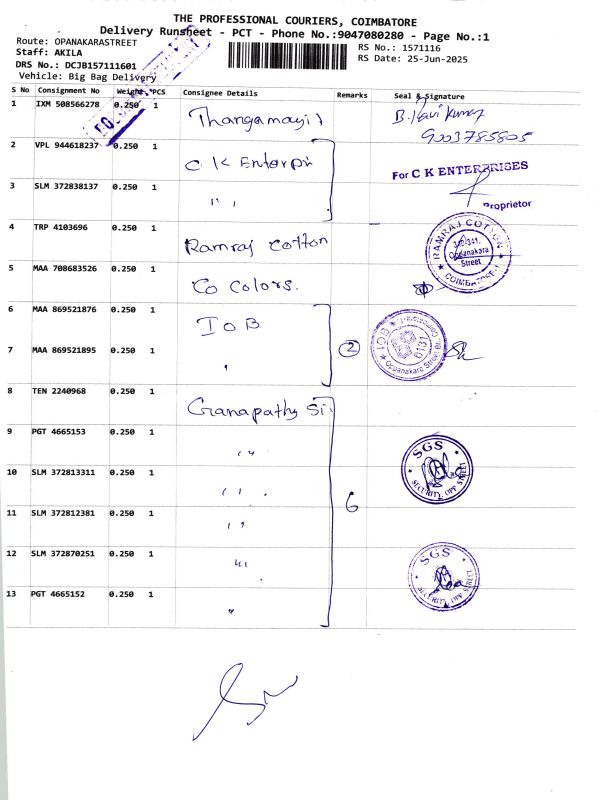 THE PROFESSIONAL COURIERS, COIMBATORE
Delivery Runsheet - PCT - Phone No.:9047080280 - Page No.:1
Route: OPANAKARASTREET
Staff: AKILA
DRS No.: DCJB157111601
Vehicle: Big Bag Delivery
RS No.: 1571116
RS Date: 25-Jun-2025
S No Consignment No Weight PCS Consignee Details Remarks Seal & Signature
1 IXM 508566278 0.250 1 B. Ravi Kumar
9003785805
2 VPL 944618237 0.250 1 C K Enterpri For C K ENTERPRISES
Proprietor
3 SLM 372838137 0.250 1 " ,
4 TRP 4103696 0.250 1 Ramraj Cotton RAMRAJ COTTON
Oppanakara
Street
COIMBATORE-1
5 MAA 708683526 0.250 1 Co Colors.
6 MAA 869521876 0.250 1 IOB
7 MAA 869521895 0.250 1 " 2 IOB
6131
Oppanakara Street Br.
8 TEN 2240968 0.250 1 Ganapathy Si
9 PGT 4665153 0.250 1 " SGS
SECURITY, OPP STREET
10 SLM 372813311 0.250 1 "
11 SLM 372812381 0.250 1 " 6
12 SLM 372870251 0.250 1 " SGS
SECURITY, OPP STREET
13 PGT 4665152 0.250 1 "